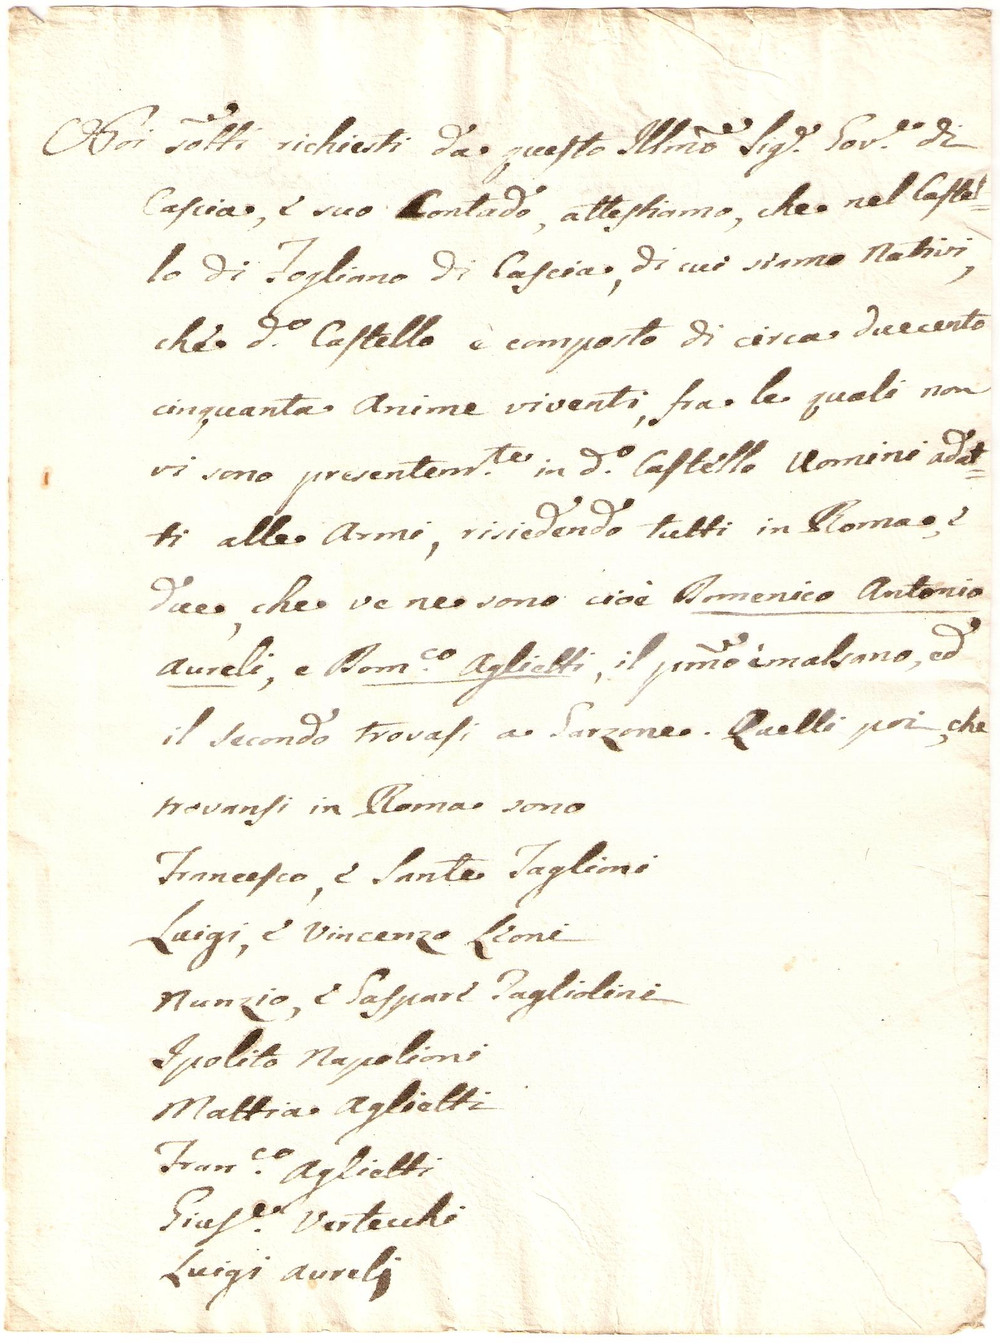 Noi sotti richiesti da questo Illmo Sigr. Govre. di
Cascia, e suo Contado, attestiamo, che nel Castel=
lo di Fogliano di Cascia, di cui siamo Nativi,
che do. Castello è composto di circa duecento
cinquanta Anime viventi, fra le quali non
vi sono presentemte. in do. Castello Uomini adat=
ti alle Armi, risiedendo tutti in Roma, e
due, che ve ne sono cioè Domenico Antonio
Aureli, e Domco. Aglietti, il pmo è malsano, ed
il secondo trovasi a Garzone. Quelli poi, che
trovansi in Roma sono
Francesco, e Sante Taglioni
Luigi, e Vincenzo Leoni
Nunzio, e Gaspare Pagliolini
Ipolito Napolioni
Mattia Aglietti
Franco. Aglietti
Giuse. Vertecchi
Luigi Aureli